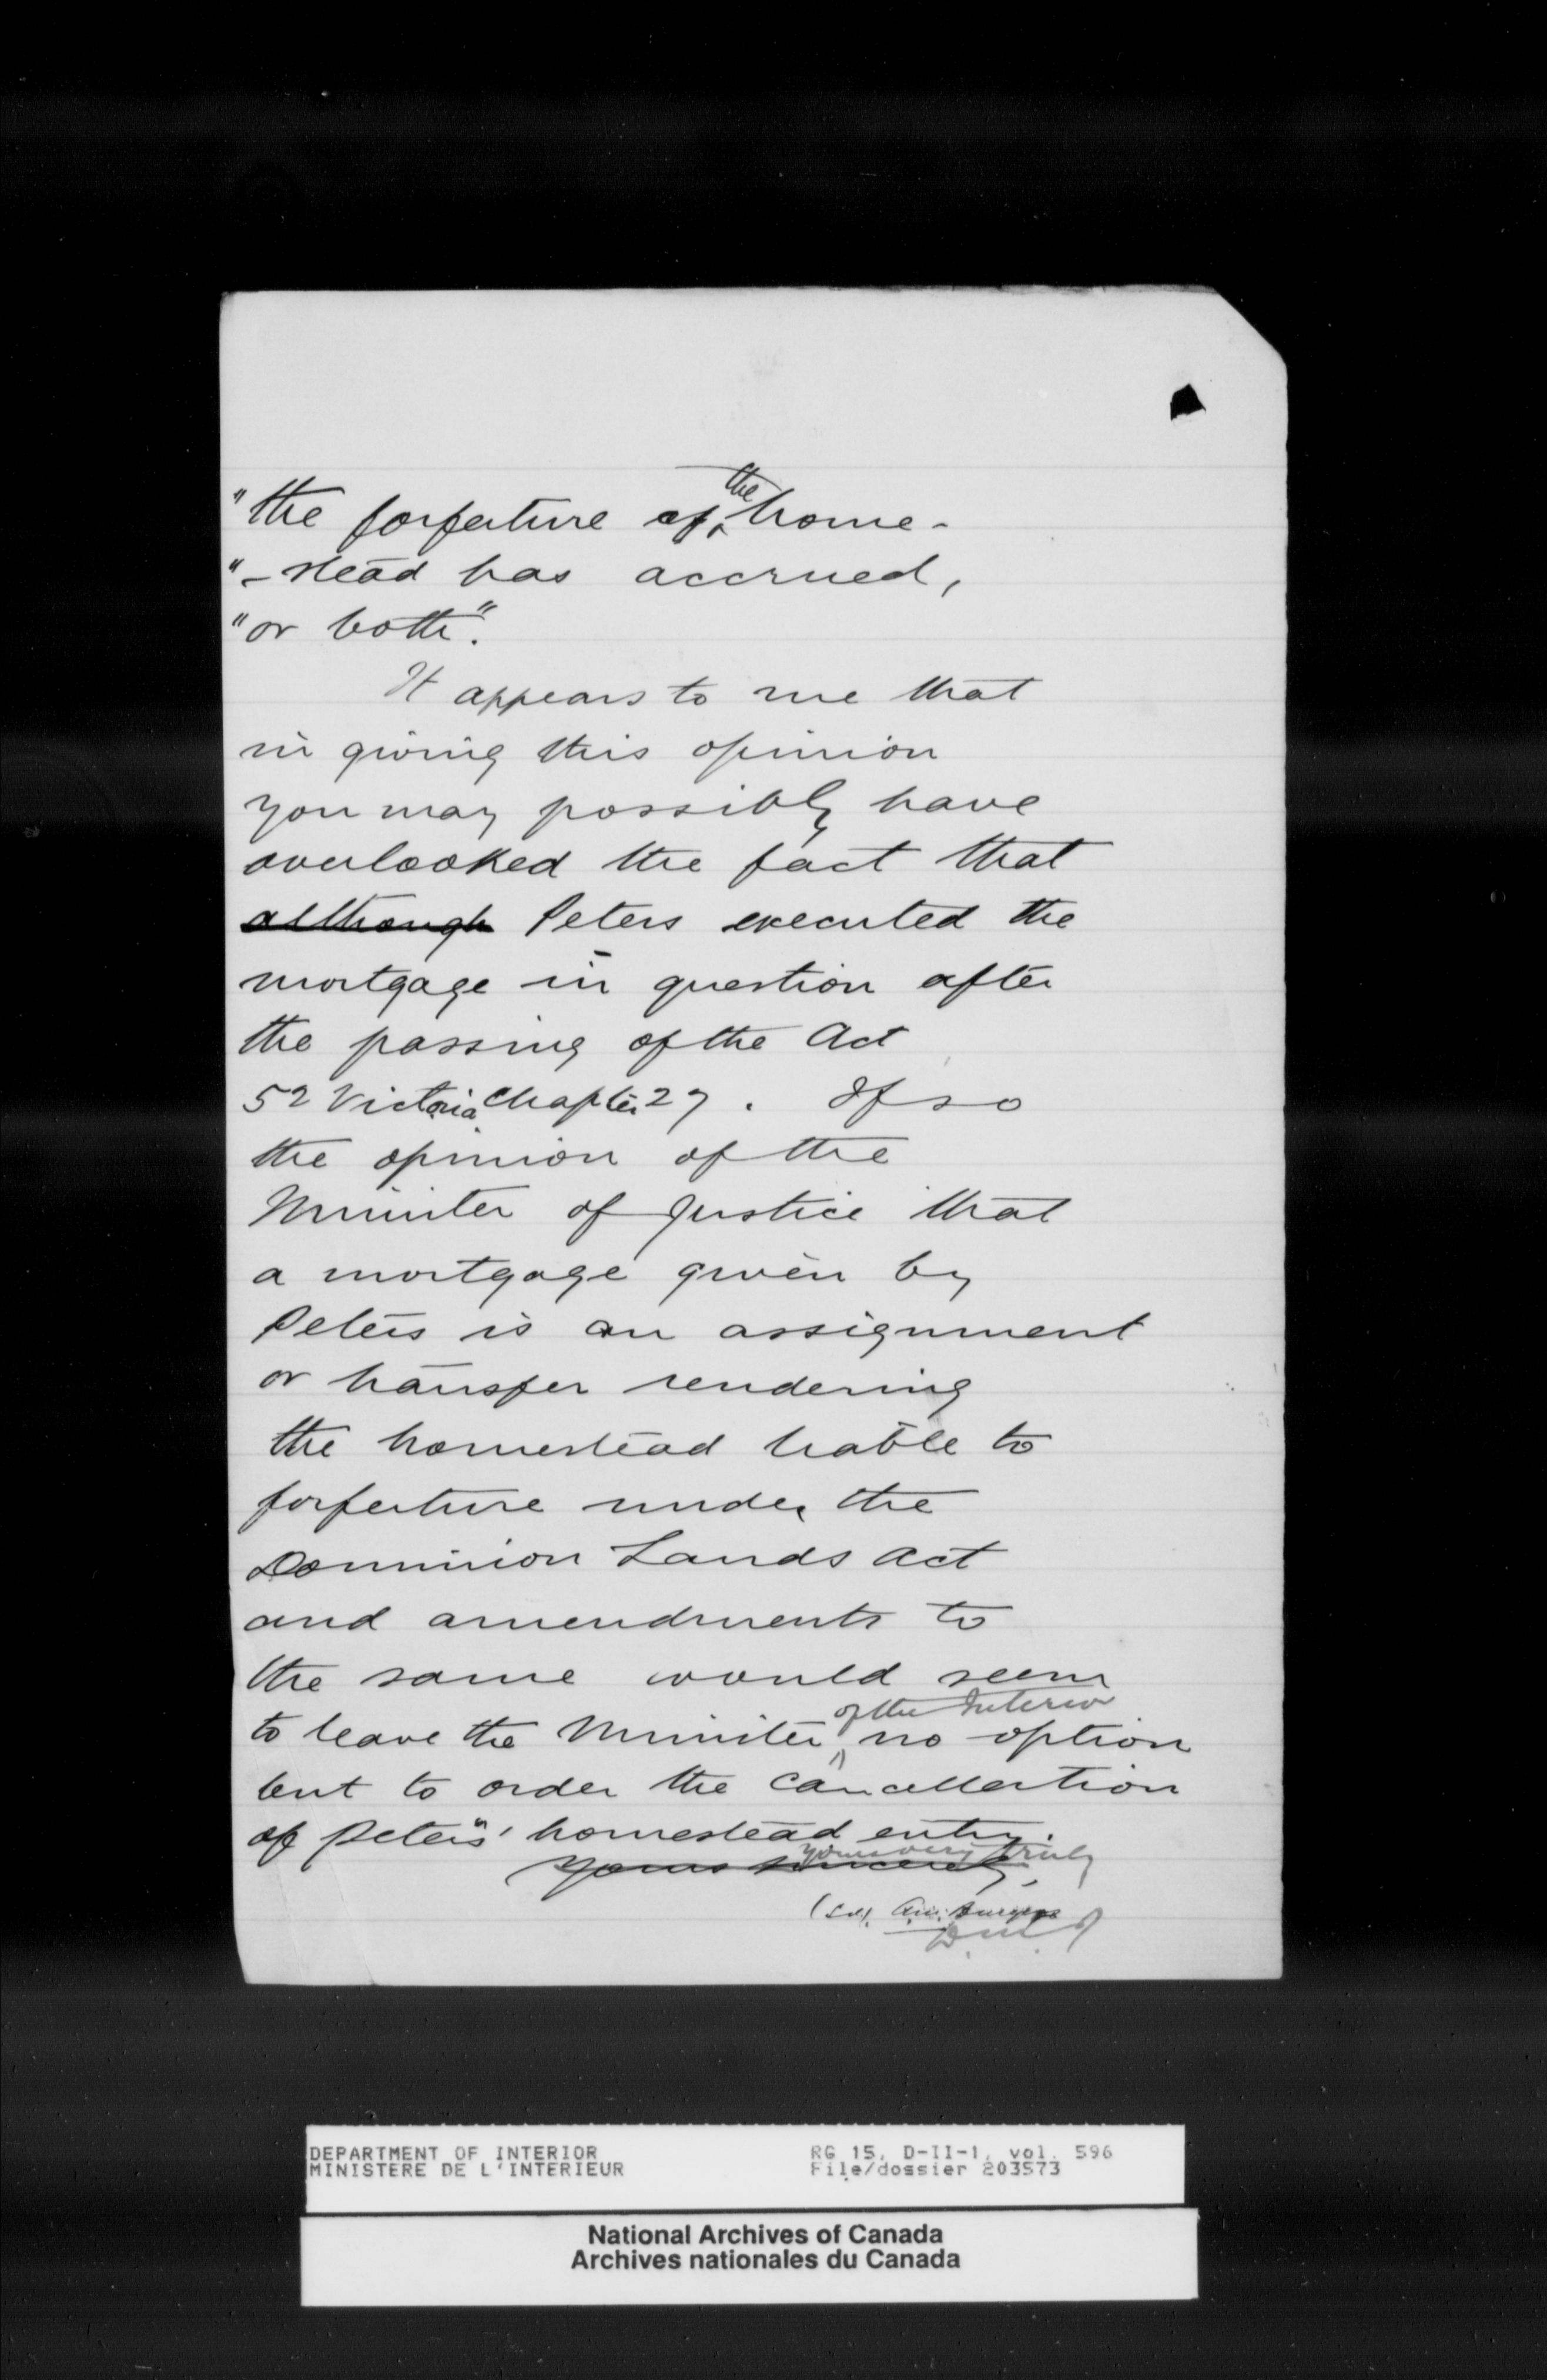 "the forfeiture of the home-
"-stead has accrued,
"or both".
It appears to me that
in giving this opinion
you may possibly have
overlooked the fact that
although Peters executed the
mortgage in question after
the passing of the Act
52 Victoria Chapter 27. If so
the opinion of the
Minister of Justice that
a mortgage given by
Peters is an assignment
or transfer rendering
the homestead liable to
forfeiture under the
Dominion Lands Act
and amendments to
the same would seem
of the Interior
to leave the Minister no option
but to order the cancellation
of Peters' homestead entry.
Yours very truly
Yours sincerely,
(Sd). A.M. Burgess
DEPARTMENT OF INTERIOR
MINISTERE DE L'INTERIEUR
RG 15, D-II-1, vol. 596
File/dossier 203573
National Archives of Canada
Archives nationales du Canada